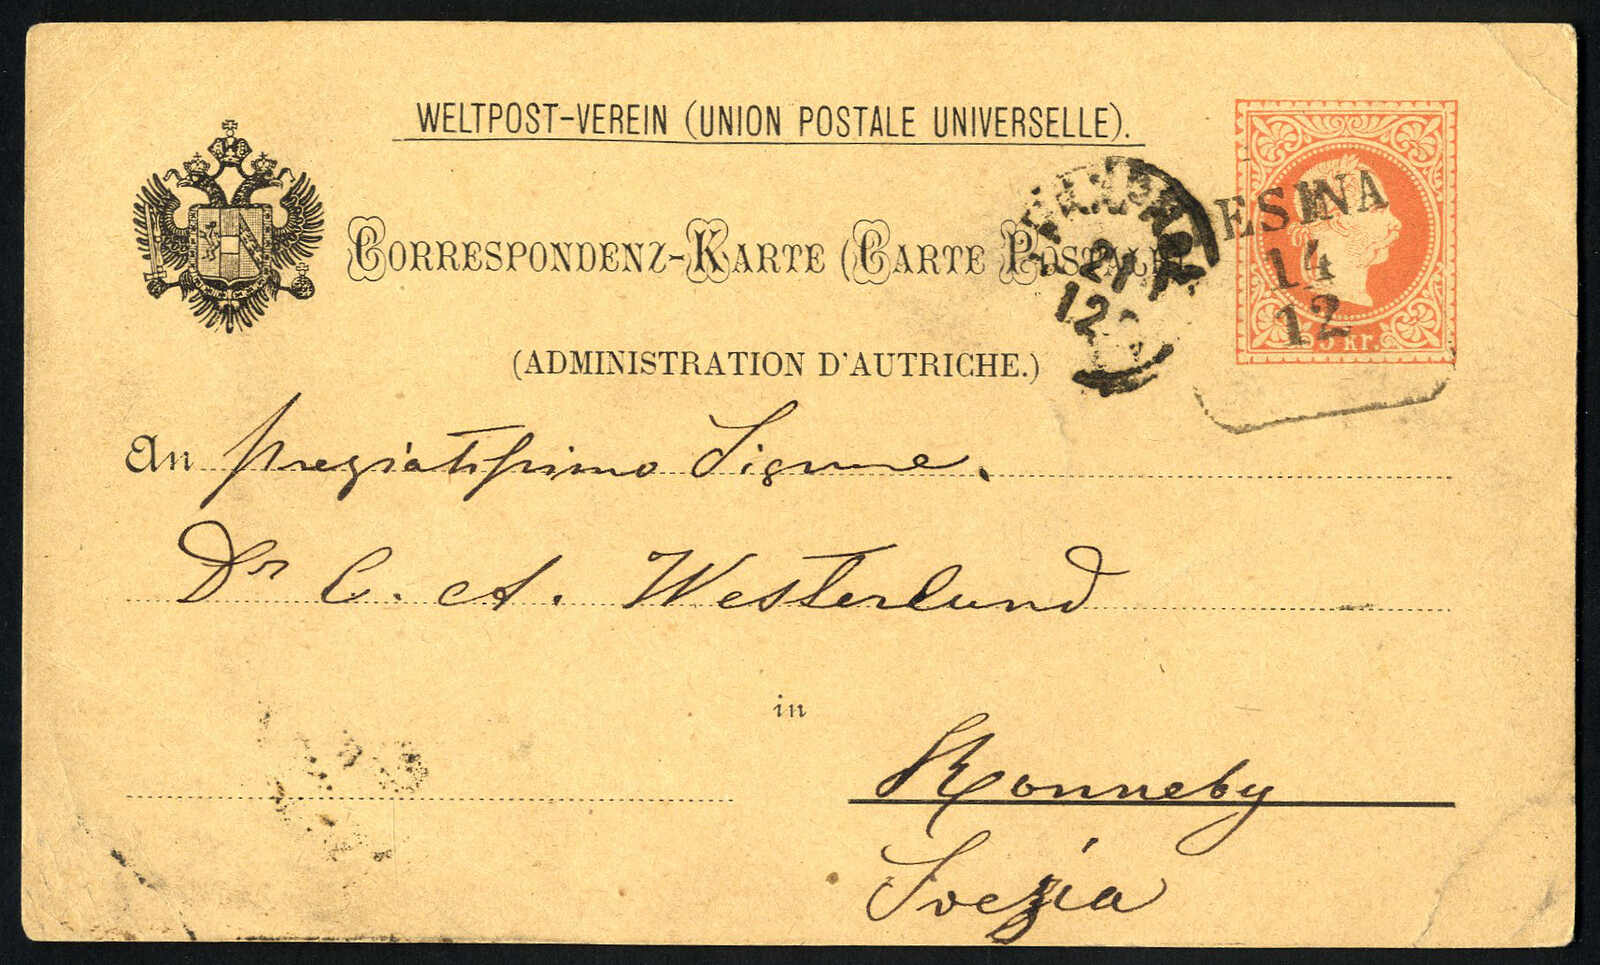 WELTPOST-VEREIN (UNION POSTALE UNIVERSELLE).
CORRESPONDENZ-KARTE (CARTE POSTALE)
(ADMINISTRATION D'AUTRICHE.)
ESINA
14
12
21
12
5 kr.
An pregiatissimo Signore.
Dr C. A. Westerlund
in
Ronneby
Svezia